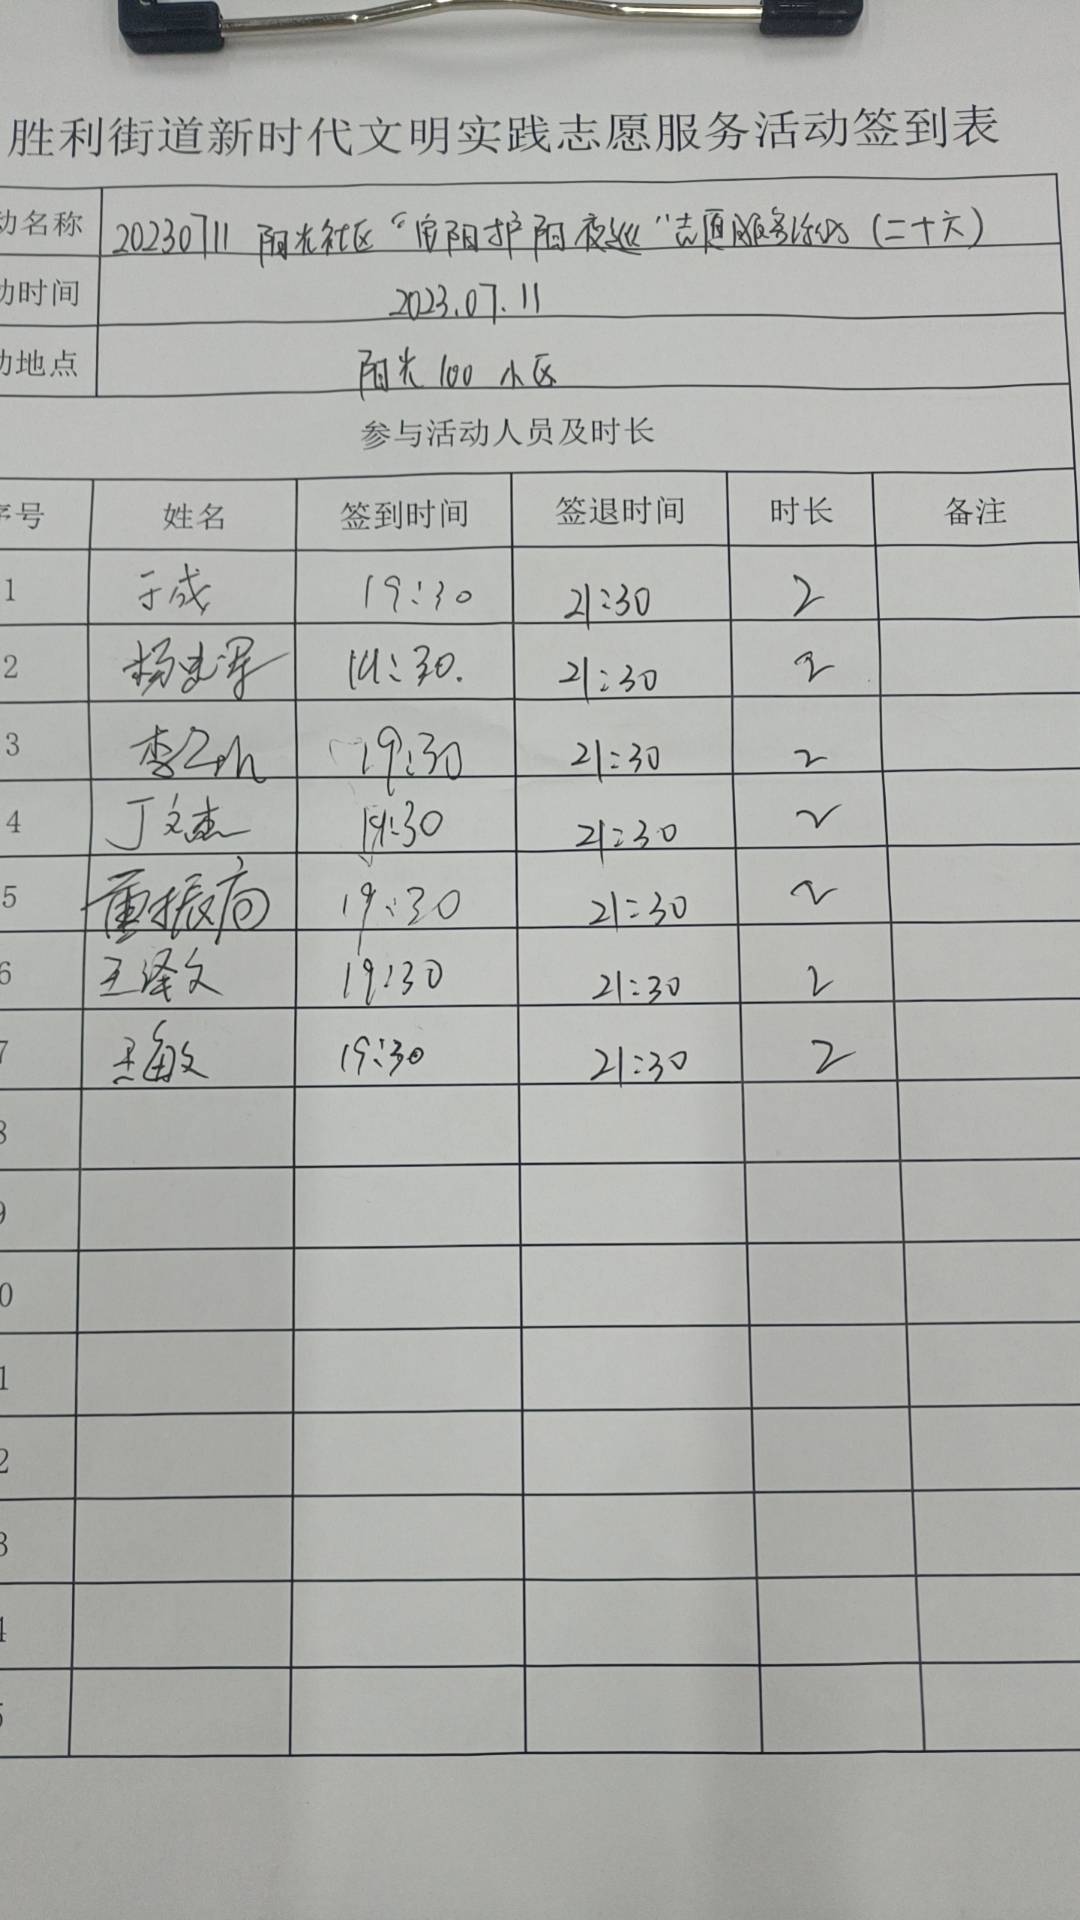 胜利街道新时代文明实践志愿服务活动签到表
动名称 20230711 阳光社区“ 阳护阳夜巡”志愿服务活动(二十六)
动时间 2023.07.11
动地点 阳光100 小区
参与活动人员及时长
序号 姓名 签到时间 签退时间 时长 备注
1 于成 19:30 21:30 2
2 杨 19:30. 21:30 2
3 李 19:30 21:30 2
4 丁文杰 19:30 21:30 2
5 董振 19:30 21:30 2
6 王泽文 19:30 21:30 2
7 王敏 19:30 21:30 2
8
9
0
1
2
3
4
5